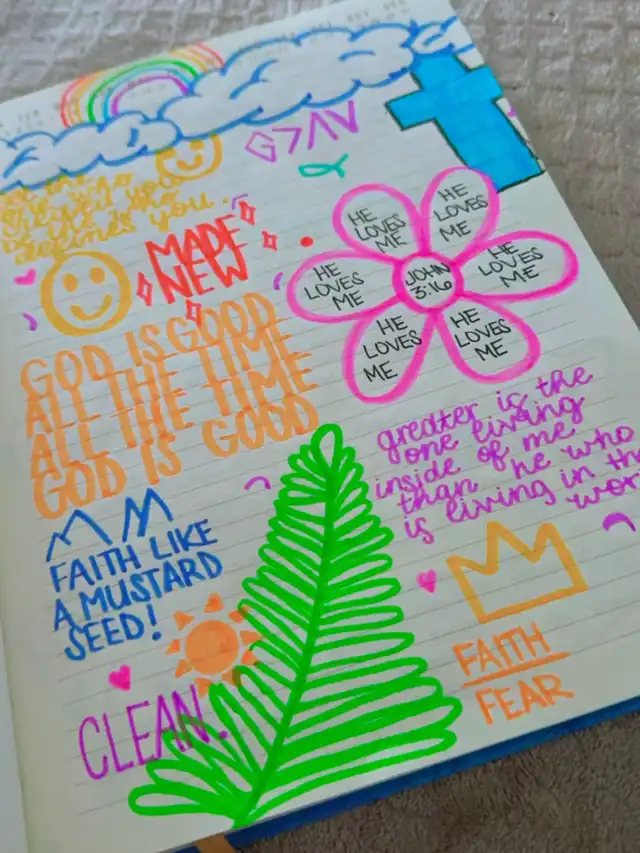 G>ΛV
defines you.
MADE
NEW
HE
LOVES
ME
HE
LOVES
ME
HE
LOVES
ME
HE
LOVES
ME
HE
LOVES
ME
HE
LOVES
ME
JOHN
3:16
GOD IS GOOD
ALL THE TIME
ALL THE TIME
GOD IS GOOD
greater is the
one living
inside of me
than he who
is living in the
FAITH LIKE
A MUSTARD
SEED!
CLEAN.
FAITH
FEAR